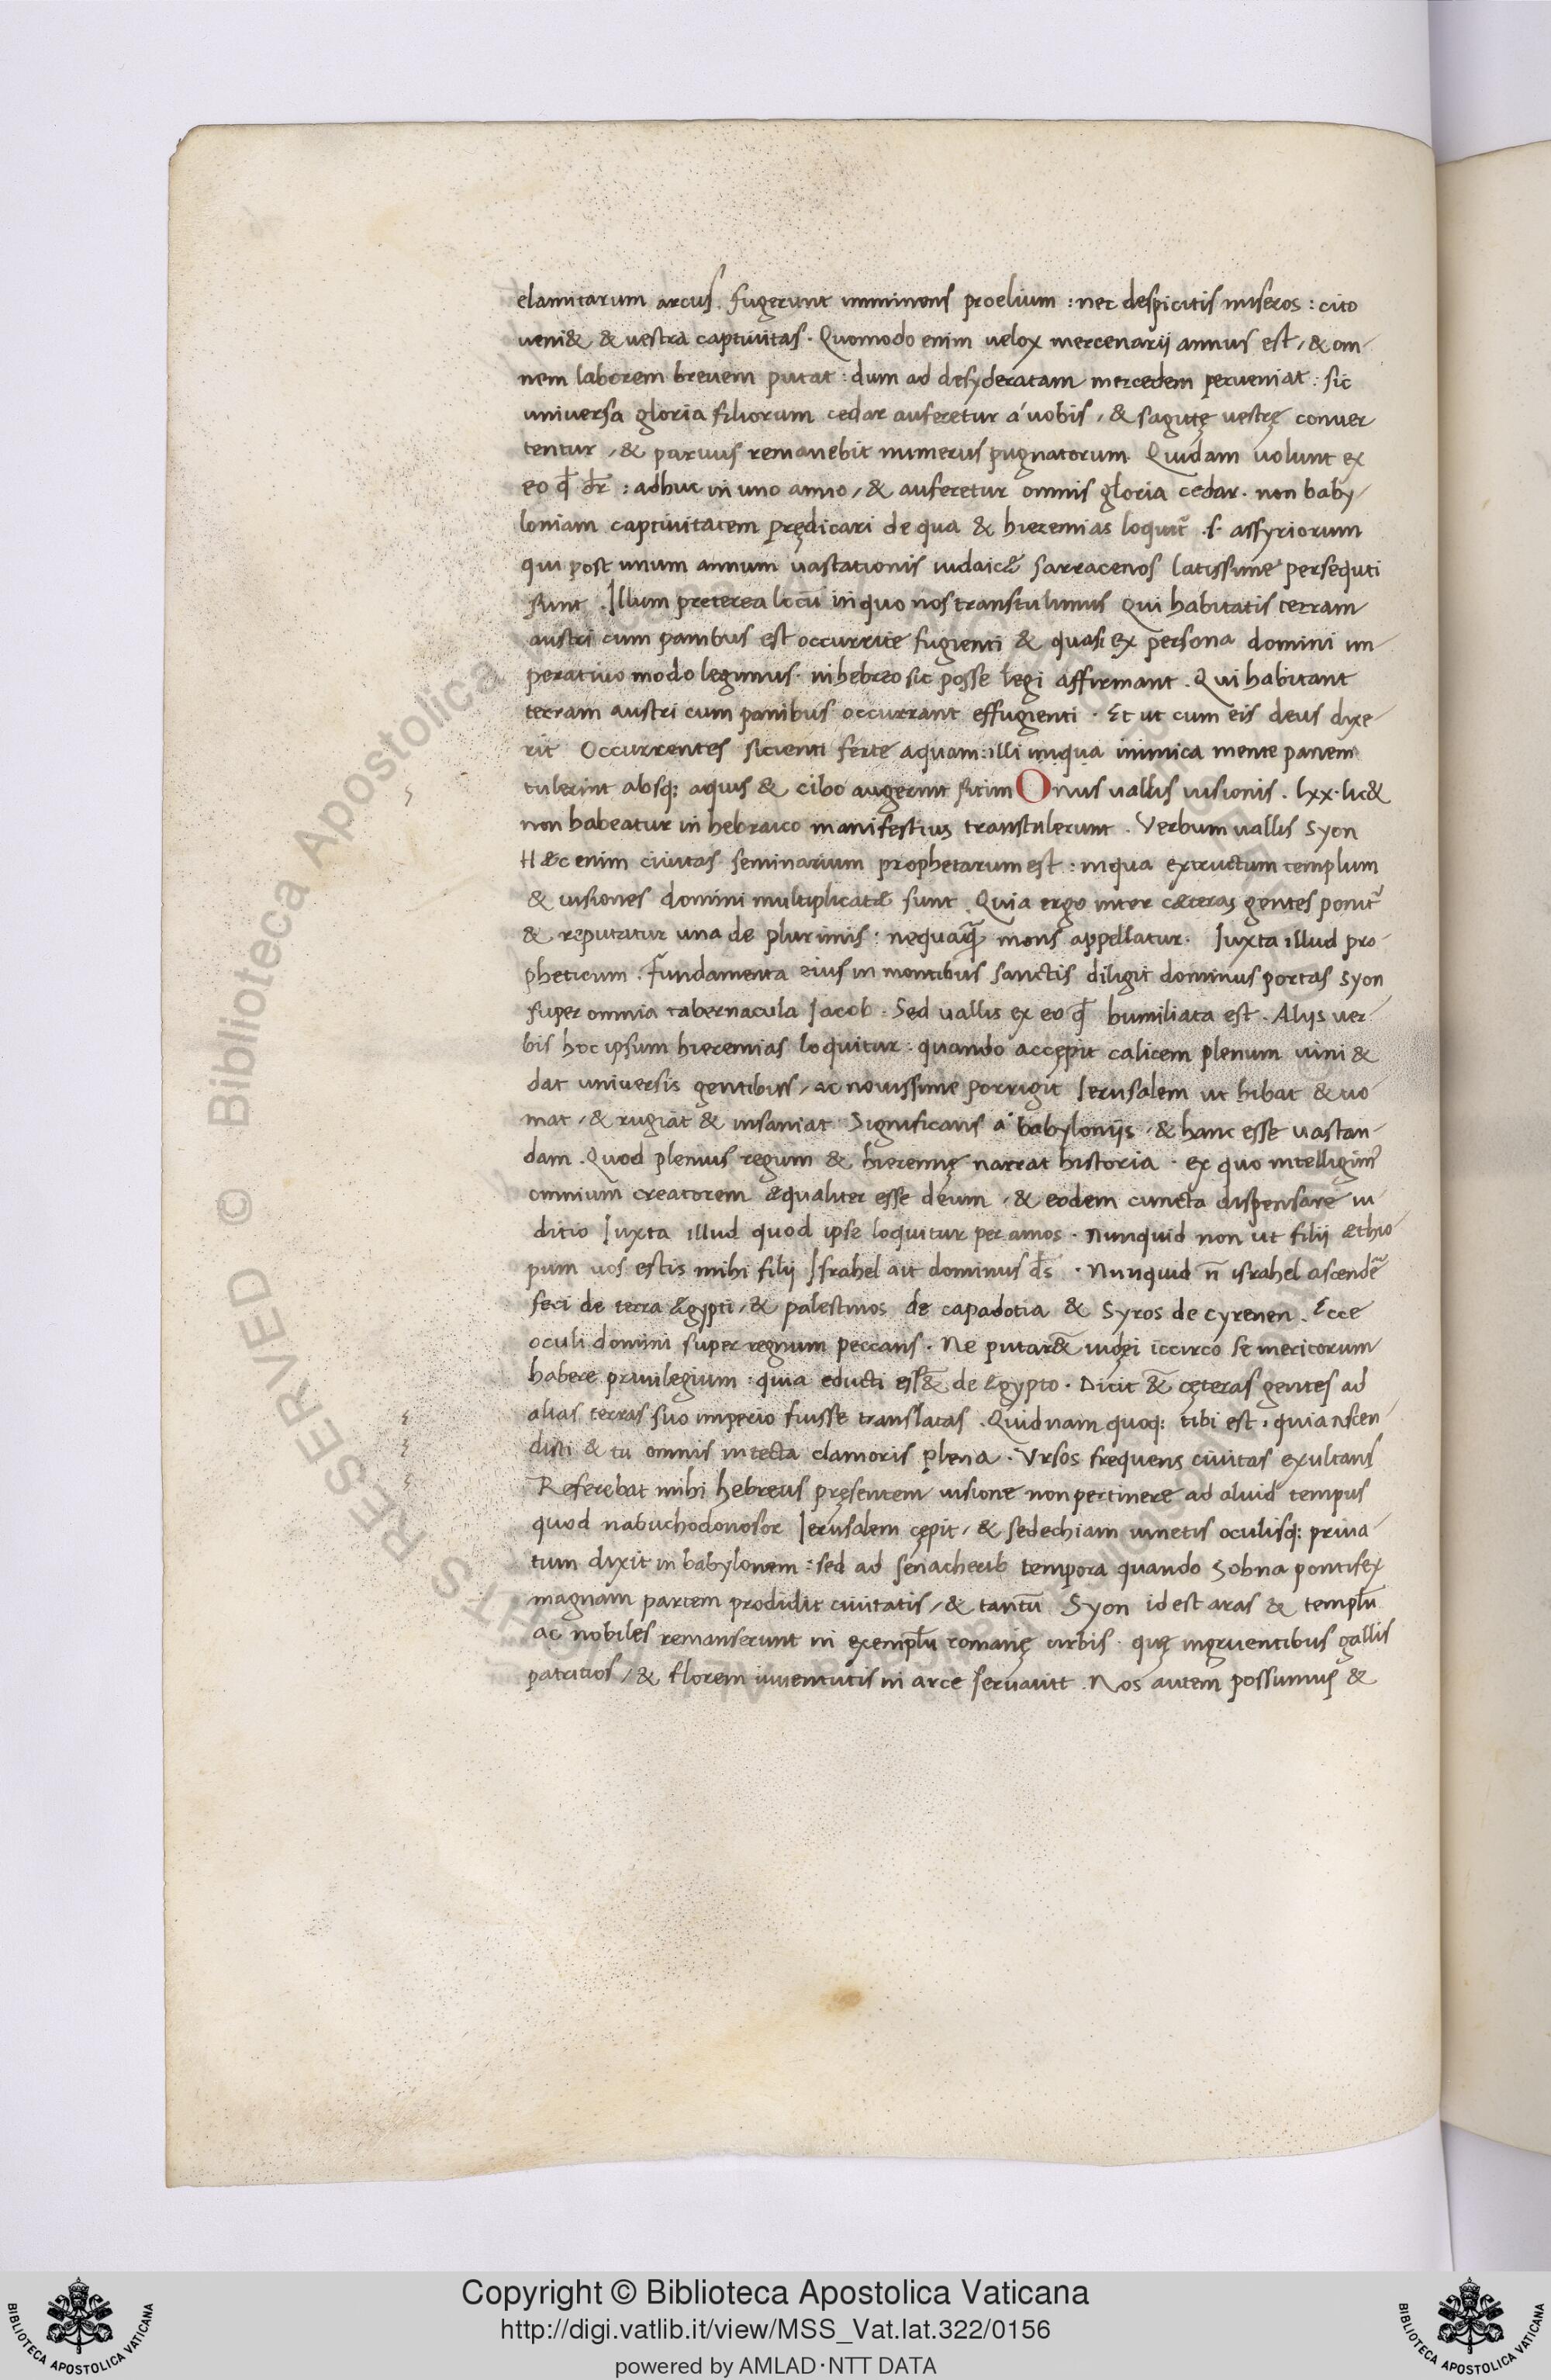 elamitarum arcus. fugerunt imminens proelium : nec despicitis miseros : cito
veni& & vestra captivitas. Quomodo enim velox mercenarij annus est, & om-
nem laborem brevem putat : dum ad desyderatam mercedem perveniat : sic
universa gloria filiorum cedar auferetur á vobis, & sagittę vestrę conver
tentur, & parvus remanebit numerus pugnatorum. Quidam volunt ex
eo qđ dr̄ : adhuc in uno anno, & auferetur omnis gloria cedar. non baby-
loniam captivitatem prędicari de qua & hieremias loquit᷑ .s. assyriorum
qui post unum annum vastationis iudaicæ sarracenos latissime persequti
sunt. Illum preterea locū in quo nos transtulimus Qui habitatis terram
austri cum panibus est occurrite fugienti & quasi ex persona domini im-
perativo modo legimus. in hebreo sic posse legi affirmant. Qui habitant
terram austri cum panibus occurrant effugienti. Et ut cum eis deus dixe-
rit Occurrentes sicienti ferte aquam : illi iniqua inimica mente panem
tulerint absq; aquis & cibo augerint sitim Onus vallis visionis. lxx. lic&
non habeatur in hebraico manifestius transtulerunt. Verbum vallis Syon
Hæc enim civitas seminarium prophetarum est : in qua extructum templum
& visiones domini multiplicatæ sunt. Quia ergo inter cæteras gentes ponit᷑
& reputatur una de plurimis : nequaq̄ mons appellatur. Iuxta illud pro-
pheticum. Fundamenta eius in montibus sanctis diligit dominus portas syon
super omnia tabernacula Iacob. Sed vallis ex eo qđ humiliata est. Alijs ver-
bis hoc ipsum hieremias loquitur : quando accępit calicem plenum vini &
dat universis gentibus, ac novissime porrigit Ierusalem ut bibat & vo-
mat, & rugiat & insaniat Significans á babylonijs, & hanc esse vastan-
dam. Quod plenius regum & hieremię narrat historia. ex quo intelligim᷒
omnium creatorem æqualiter esse deum, & eodem cuncta dispensare iu-
ditio Iuxta illud quod ipse loquitur per amos. Nunquid non ut filij æthio-
pum vos estis mihi filij Israhel ait dominus ds̄. Nunquid n̄ israhel ascendē
feci de terra ægypti, & palestinos de capadotia & Syros de cyrenen. Ecce
oculi domini super regnum peccans. Ne putar&̄ iudęi iccirco se meritorum
habere privilegium : quia educti ess&̄ de ægypto. Dicit &̄ cęteras gentes ad
alias terras suo imperio fuisse translatas. Quidnam quoq; tibi est : quia ascen
disti & tu omnis in tecta clamoris plena. Ursos frequens civitas exultans
Referebat mihi hebreus pręsentem visione non pertinere ad aliud tempus
quod nabuchodonosor Ierusalem cępit, & sedechiam vinctis oculisq; priva-
tum dixit in babylonem : sed ad senacherib tempora quando sobna pontifex
magnam partem prodidit civitatis, & tantū Syon id est aras & templū
ac nobiles remanserunt in exemplū romanę urbis. quę ingruentibus gallis
patritios, & florem iuventutis in arce servavit. Nos autem possumus &
Copyright © Biblioteca Apostolica Vaticana
http://digi.vatlib.it/view/MSS_Vat.lat.322/0156
powered by AMLAD·NTT DATA